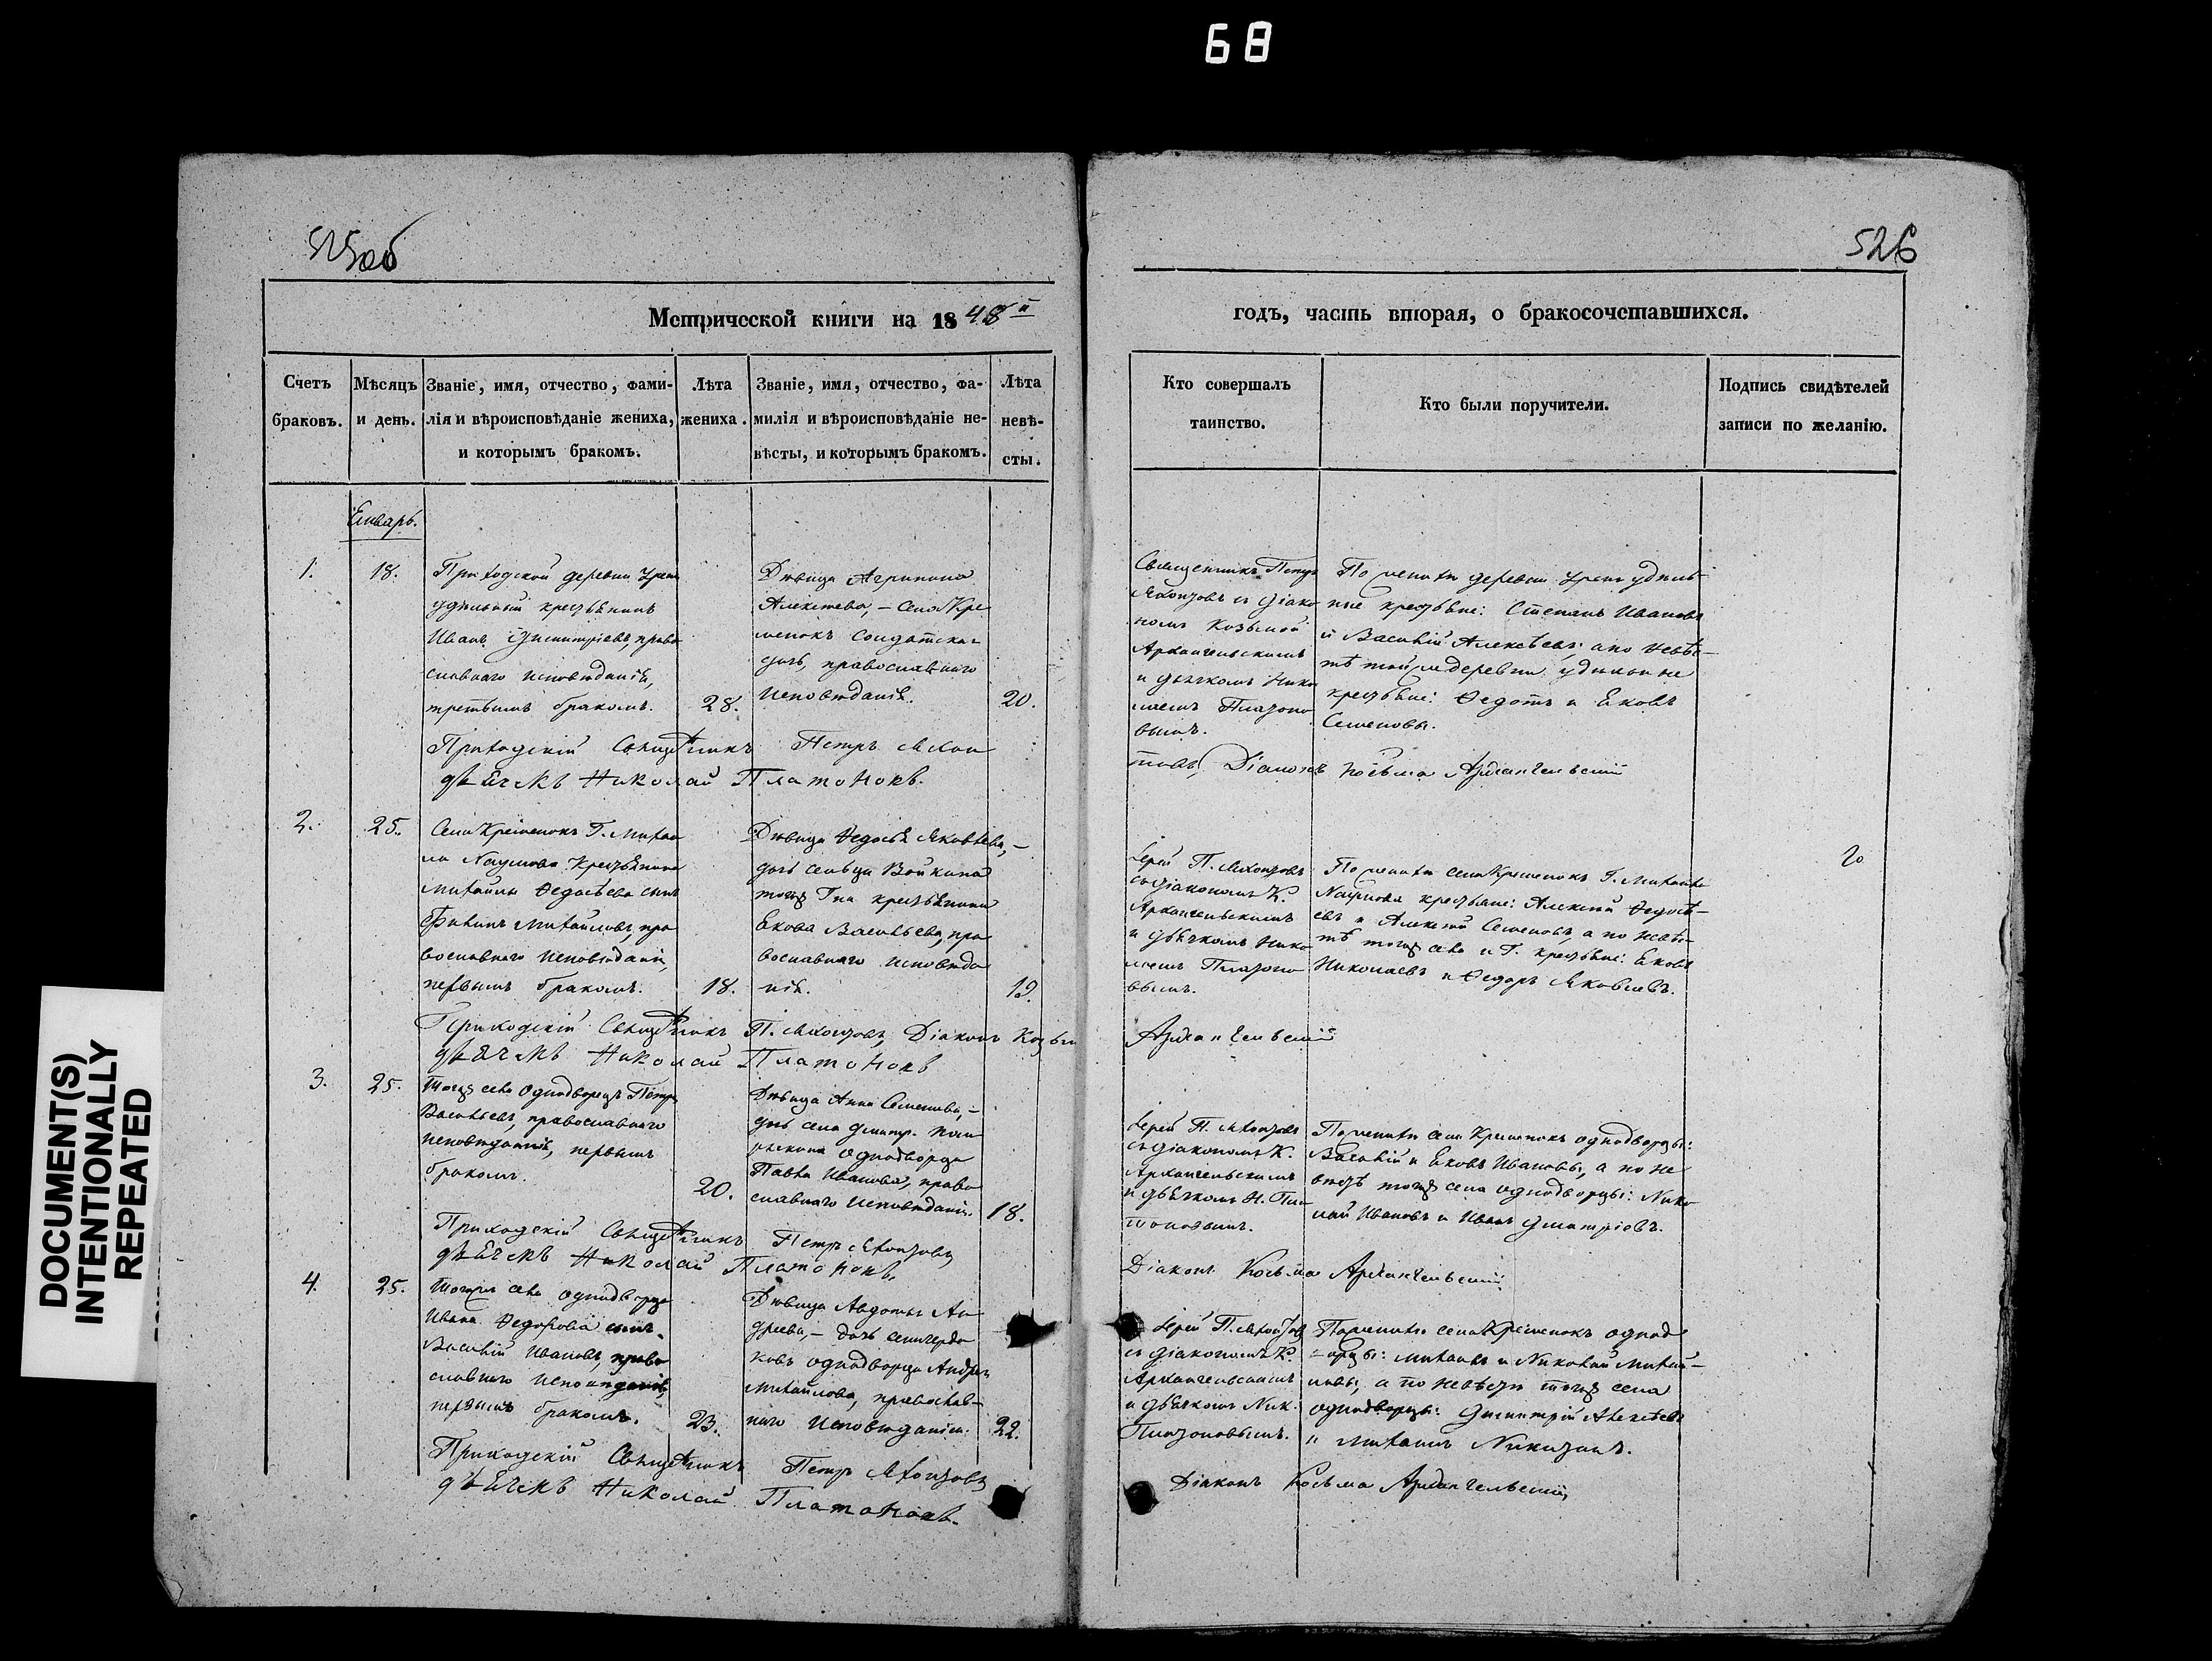 68
525об
526
Метрической книги на 1848й
годъ, часть вторая, о бракосочетавшихся.
Счетъ браковъ.
Мѣсяцъ и день.
Званіе, имя, отчество, фами-
лія и вѣроисповѣданіе жениха,
и которымъ бракомъ.
Лѣта жениха.
Званіе, имя, отчество, фа-
милія и вѣроисповѣданіе не-
вѣсты, и которымъ бракомъ.
Лѣта невѣ-
сты.
Кто совершалъ
таинство.
Кто были поручители.
Подпись свидѣтелей
записи по желанію.
Енварь.
1.
18.
Приходской деревни
удѣльный крестьянинъ
Иванъ Димитріевъ, право
славнаго исповѣданія,
третьимъ бракомъ.
28.
Дѣвица Агрипина
Алексѣева, – села Кре
менокъ солдатская
дочь, православнаго
исповѣданія.
20.
Священникъ Петръ
Яхонтовъ съ діако
номъ Козьмой
Архангельскимъ
и дьячкомъ Нико
лаемъ Платоно
вымъ.
По женихѣ деревни удѣль-
ные крестьяне: Степанъ Ивановъ
и Василій Алексѣевъ; а по невѣс-
тѣ той же деревни удѣльные
крестьяне: Ѳедотъ и Яковъ
Семеновы.
Приходскій Священникъ Петръ Яхон
товъ, Діаконъ Косьма Архангельскій
дьячекъ Николай Платоновъ.
2.
25.
Села Кременокъ Г. Михаи
ла Наумова крестьянина
Михайлы Ѳедосѣева сынъ
Филипъ Михайловъ, пра
вославнаго исповѣданія,
первымъ бракомъ.
18.
Дѣвица Ѳедосья Яковлева, –
дочь сельца Войкина
тогоже Гна крестьянина
Якова Васильева, пра
вославнаго исповѣда
нія.
19.
Іерей П. Яхонтовъ
съ діакономъ К.
Архангельскимъ
и дьячкомъ Нико
лаемъ Платоно
вымъ.
По женихѣ села Кременокъ Г. Михайла
Наумова крестьяне: Алексѣй Ѳедосѣ-
евъ и Алексѣй Семеновъ, а по невѣс-
тѣ тогоже села и Г. крестьяне: Яковъ
Николаевъ и Ѳедоръ Яковлевъ.
Приходскій Священникъ П. Яхонтовъ, Діаконъ Козьма
Архангельскій
дьячекъ Николай Платоновъ
3.
25.
Тогоже села однодворецъ Петръ
Васильевъ, православнаго
исповѣданія, первымъ
бракомъ.
20.
Дѣвица Анна Семенова, –
дочь села Дмитр.
однодворца
Павла Иванова, право
славнаго исповѣданія.
18.
Іерей П. Яхонтовъ
съ діакономъ К.
Архангельскимъ
и дьячкомъ Н. Пла
тоновымъ.
По женихѣ села Кременокъ однодворцы:
Василій и Яковъ Ивановы, а по не
вѣстѣ тогоже села однодворцы: Нико
лай Ивановъ и Иванъ Дмитріевъ.
Приходскій Священникъ Петръ Яхонтовъ,
Діаконъ Косьма Архангельскій
дьячекъ Николай Платоновъ,
4.
25.
Тогоже села однодворца
Ивана Ѳедорова сынъ
Василій Ивановъ, право
славнаго исповѣданія,
первымъ бракомъ.
23.
Дѣвица Авдотья Ан
дреева, – дочь
однодворца Андрея
Михайлова, православ-
наго исповѣданія.
22.
Іерей П. Яхонтовъ
съ діакономъ К.
Архангельскимъ
и дьячкомъ Ник.
Платоновымъ.
По женихѣ села Кременокъ однод
ворцы: Михаилъ и Николай Михай-
ловы, а по невѣстѣ тогоже села
однодворцы: Димитрій Алексѣевъ
и Михаилъ Никитинъ.
Приходскій Священникъ Петръ Яхонтовъ
Діаконъ Косьма Архангельскій,
дьячекъ Николай Платоновъ.
DOCUMENT(S)
INTENTIONALLY
REPEATED